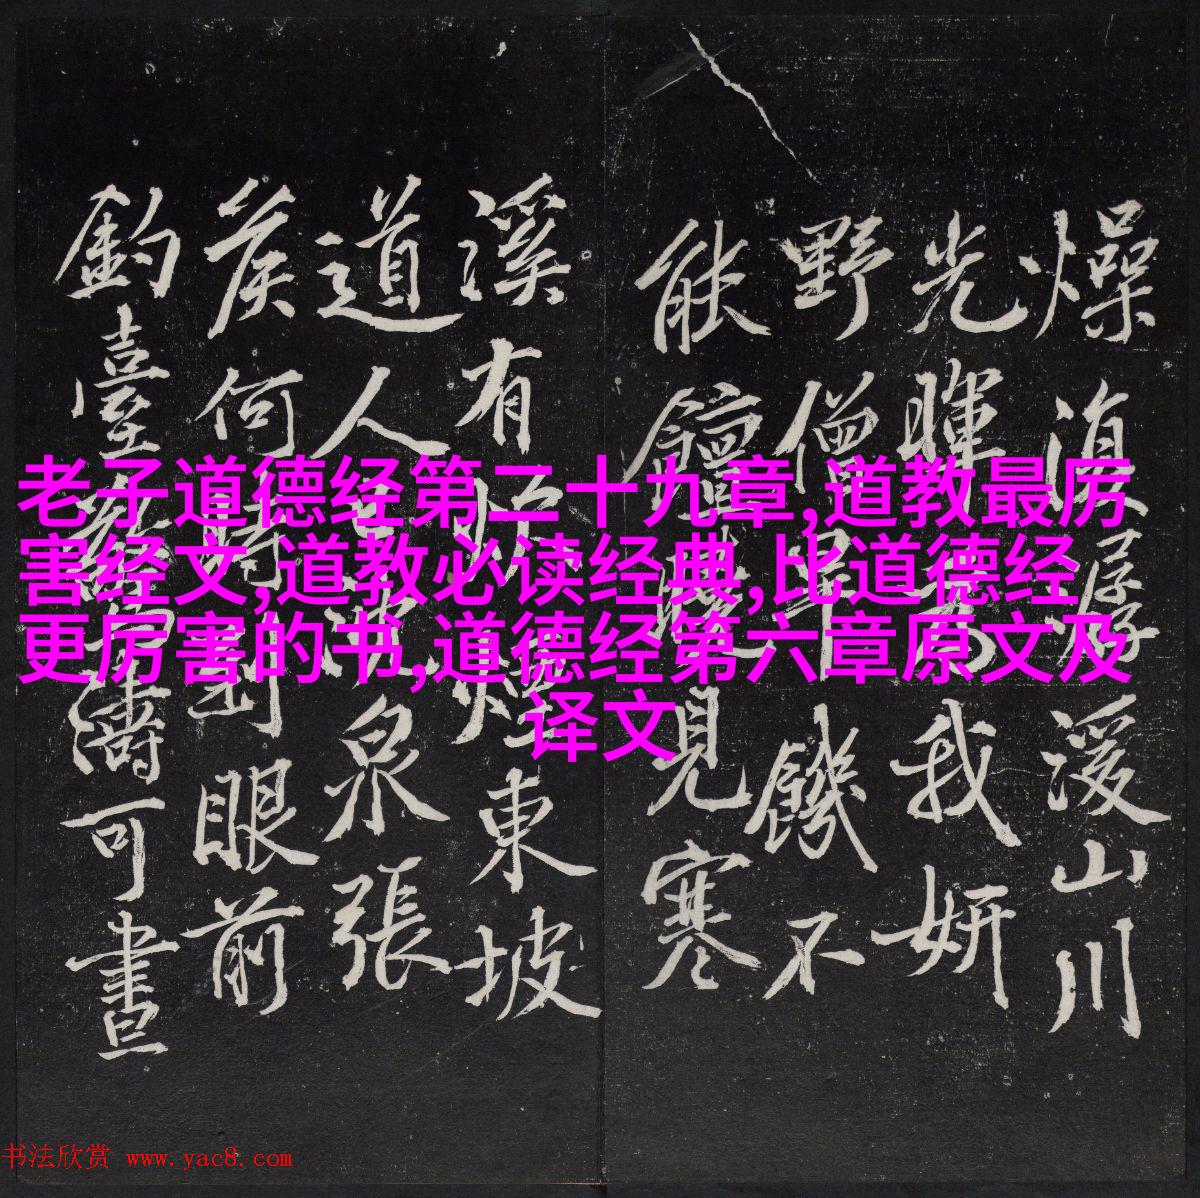 老子道德经第二十九章,道教最厉
害经文,道教必读经典,比道德经
更厉害的书,道德经第六章原文及
译文
燥 溪山川
光暉 我妍
野僧 饑不
能 見寒
溪有 東坡
道人 泉張
侯何時到眼前
釣臺 濤可畫
书法欣赏 www.yac8.com